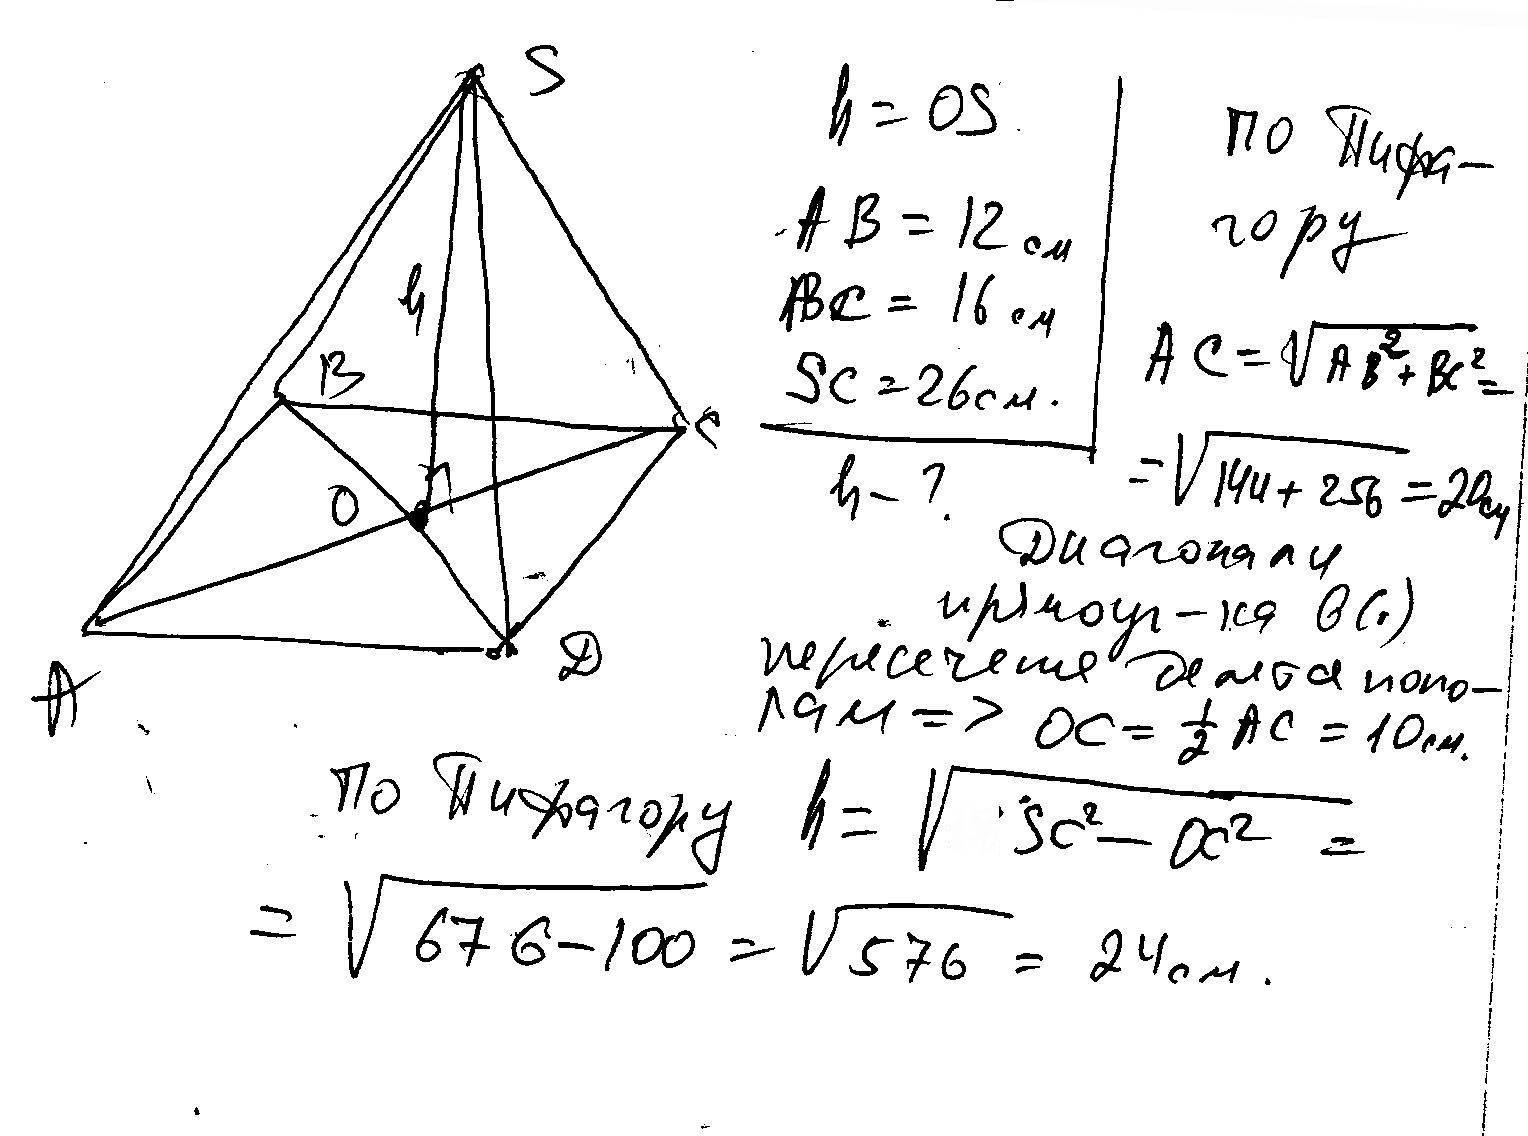 S
h
B
C
O
A
D
h = OS
AB = 12 см
BC = 16 см
SC = 26 см.
h - ?
По Пифа-
гору
AC = √AB² + BC² =
= √144 + 256 = 20 см
Диагонали
прямоуг-ка в (.)
пересечения делятся попо-
лам => OC = 1/2 AC = 10 см.
По Пифагору h = √SC² - OC² =
= √676 - 100 = √576 = 24 см.